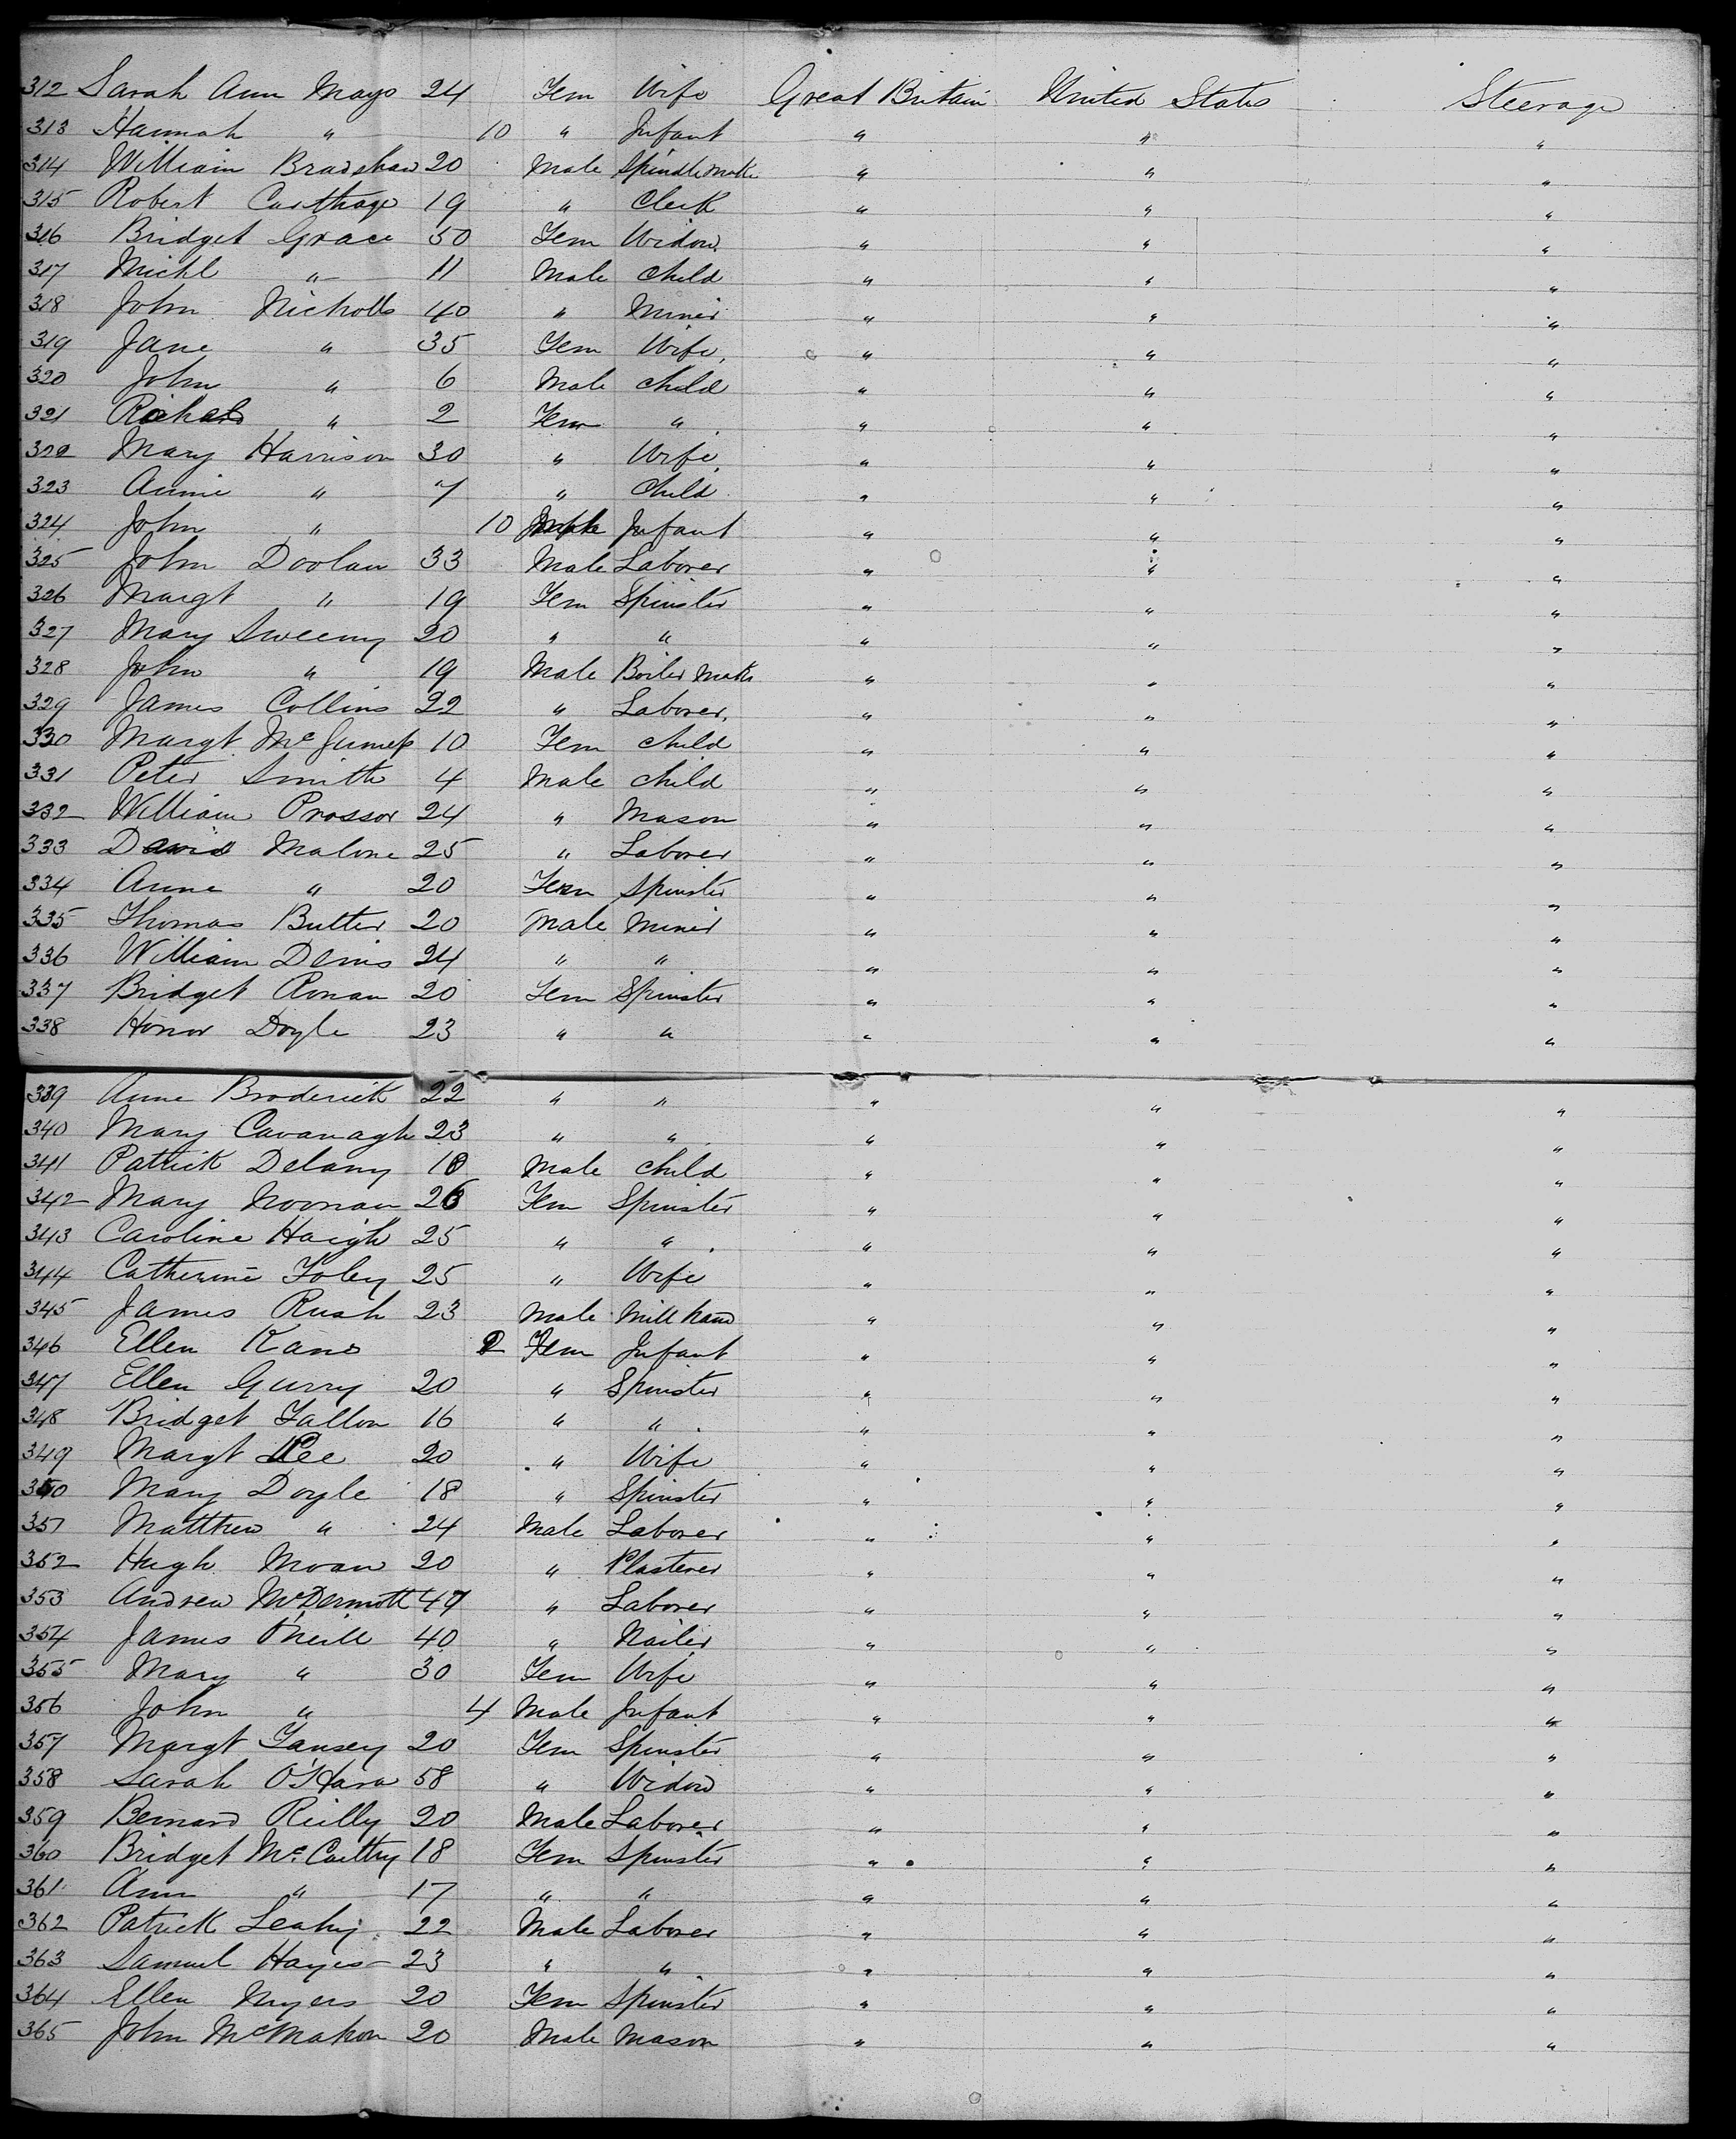 312 Sarah Ann Mayo 24 Fem Wife Great Britain United States Steerage
313 Hannah " 10 " Infant " " "
314 William Bradshaw 20 Male Spindle Mak " " "
315 Robert Carthage 19 " Clerk " " "
316 Bridget Grace 50 Fem Widow " " "
317 Michl " 11 Male Child " " "
318 John Nicholls 40 " Miner " " "
319 Jane " 35 Fem Wife " " "
320 John " 6 Male Child " " "
321 Richard " 2 Fem " " " "
322 Mary Harrison 30 " Wife " " "
323 Annie " 7 " Child " " "
324 John " 10 Male Infant " " "
325 John Doolan 33 Male Laborer " " "
326 Margt " 19 Fem Spinster " " "
327 Mary Sweeny 20 " " " " "
328 John " 19 Male Boiler Mak " " "
329 James Collins 22 " Laborer " " "
330 Margt 10 Fem Child " " "
331 Peter Smith 4 Male Child " " "
332 William Prossor 24 " Mason " " "
333 David Malone 25 " Laborer " " "
334 Anne " 20 Fem Spinster " " "
335 Thomas Butter 20 Male Miner " " "
336 William Denis 24 " " " " "
337 Bridget Ronan 20 Fem Spinster " " "
338 Honor Doyle 23 " " " " "
339 Anne Broderick 22 " " " " "
340 Mary Cavanagh 23 " " " " "
341 Patrick Delany 10 Male Child " " "
342 Mary Noonan 26 Fem Spinster " " "
343 Caroline Haigh 25 " " " " "
344 Catherine Foley 25 " Wife " " "
345 James Rush 23 Male Mill hand " " "
346 Ellen Kane 2 Fem Infant " " "
347 Ellen Gurry 20 " Spinster " " "
348 Bridget Fallon 16 " " " " "
349 Margt Lee 20 " Wife " " "
350 Mary Doyle 18 " Spinster " " "
351 Matthew " 24 Male Laborer " " "
352 Hugh Moan 20 " Plasterer " " "
353 Andrew McDermott 47 " Laborer " " "
354 James O'Neill 40 " Nailer " " "
355 Mary " 30 Fem Wife " " "
356 John " 4 Male Infant " " "
357 Margt Tansey 20 Fem Spinster " " "
358 Sarah O'Hara 58 " Widow " " "
359 Bernard Reilly 20 Male Laborer " " "
360 Bridget McCarthy 18 Fem Spinster " " "
361 Ann " 17 " " " " "
362 Patrick Leahy 22 Male Laborer " " "
363 Samuel Hayes 23 " " " " "
364 Ellen Myers 20 Fem Spinster " " "
365 John McMahon 20 Male Mason " " "